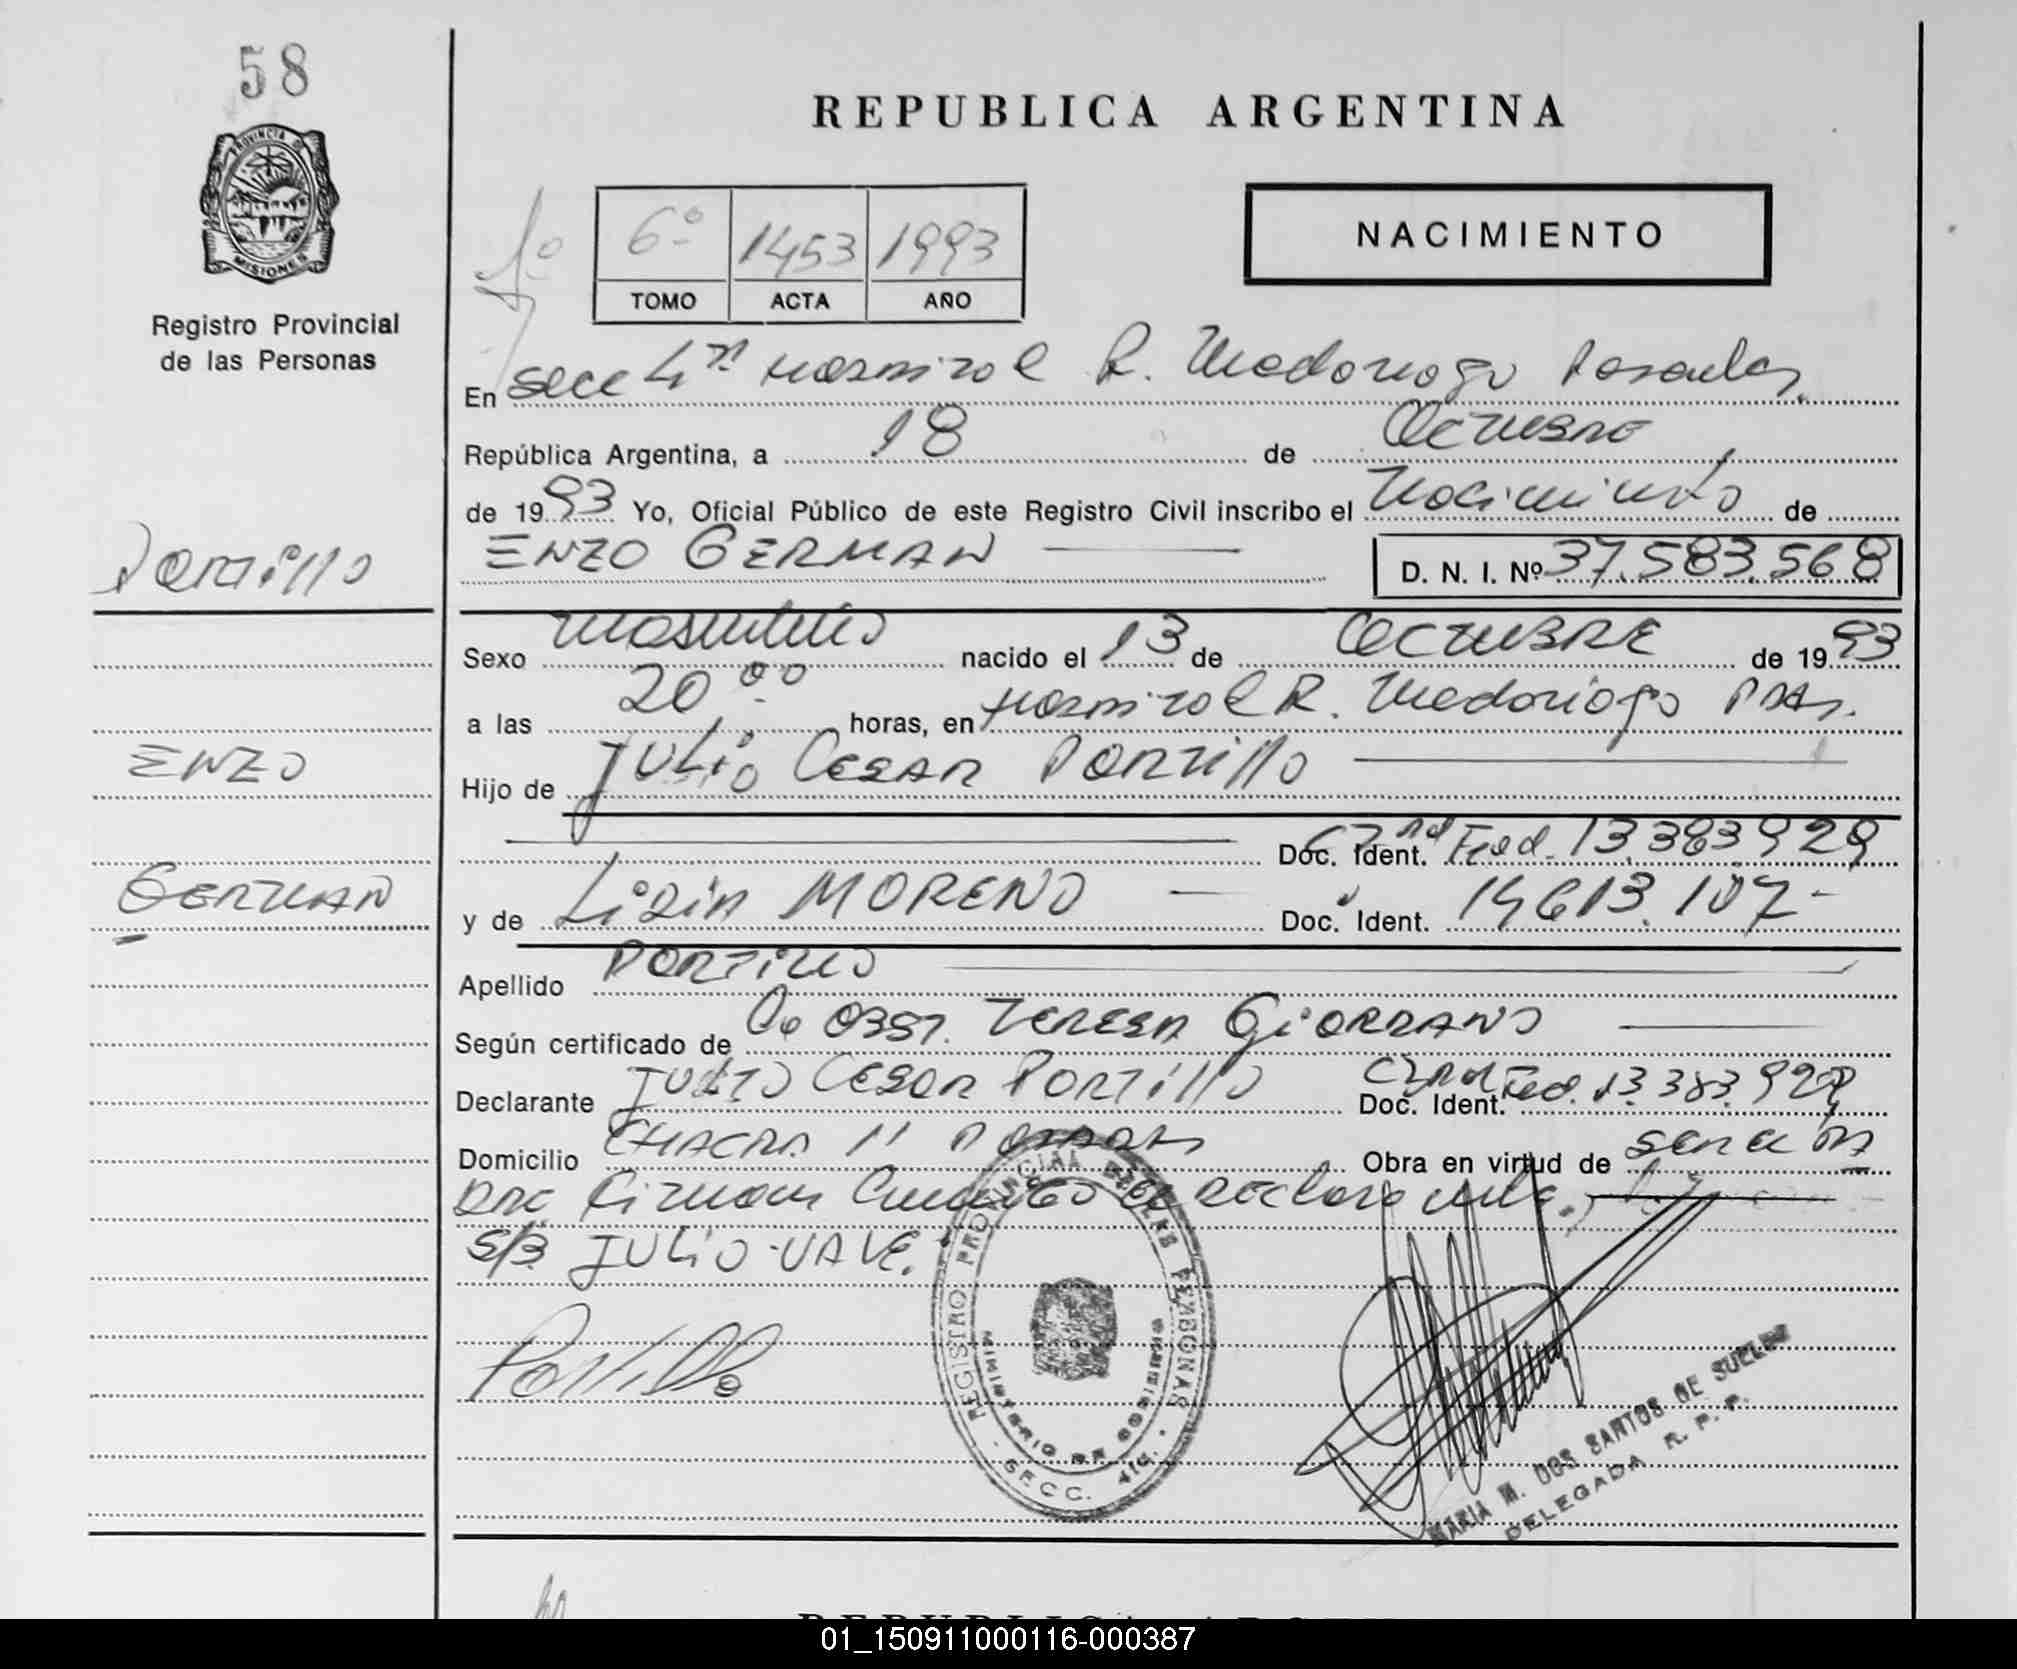 58
PROVINCIA DE
MISIONES
Registro Provincial
de las Personas
REPUBLICA ARGENTINA
6º 1453 1993
TOMO ACTA AÑO
NACIMIENTO
En Secc 4ta Hospital R. Madariaga Posadas.
República Argentina, a 18 de Octubre
de 1993 Yo, Oficial Público de este Registro Civil inscribo el Nacimiento de
ENZO GERMAN D. N. I. Nº 37.583.568
Portillo
ENZO
GERMAN
Sexo Masculino nacido el 13 de OCTUBRE de 1993
a las 20 oo horas, en Hospital R. Madariaga Pdas.
Hijo de JULIO CESAR PORTILLO
Doc. Ident. Fed. 13.383.929
y de LIDIA MORENO Doc. Ident. 14.613.107-
Apellido PORTILLO
Según certificado de Obst. TERESA GIORDANO
Declarante JULIO CESAR PORTILLO Doc. Ident. Fed. 13.383.929
Domicilio CHACRA 11 POSADAS Obra en virtud de ser el
Firman el declarante.
S/B JULIO-VALE.
Portillo
REGISTRO PROVINCIAL DE LAS PERSONAS
MINISTERIO DE GOBIERNO
SECC. 4ta.
MARIA M. DOS SANTOS DE
DELEGADA R. P. P.
REPUBLICA ARGENTINA
01_150911000116-000387